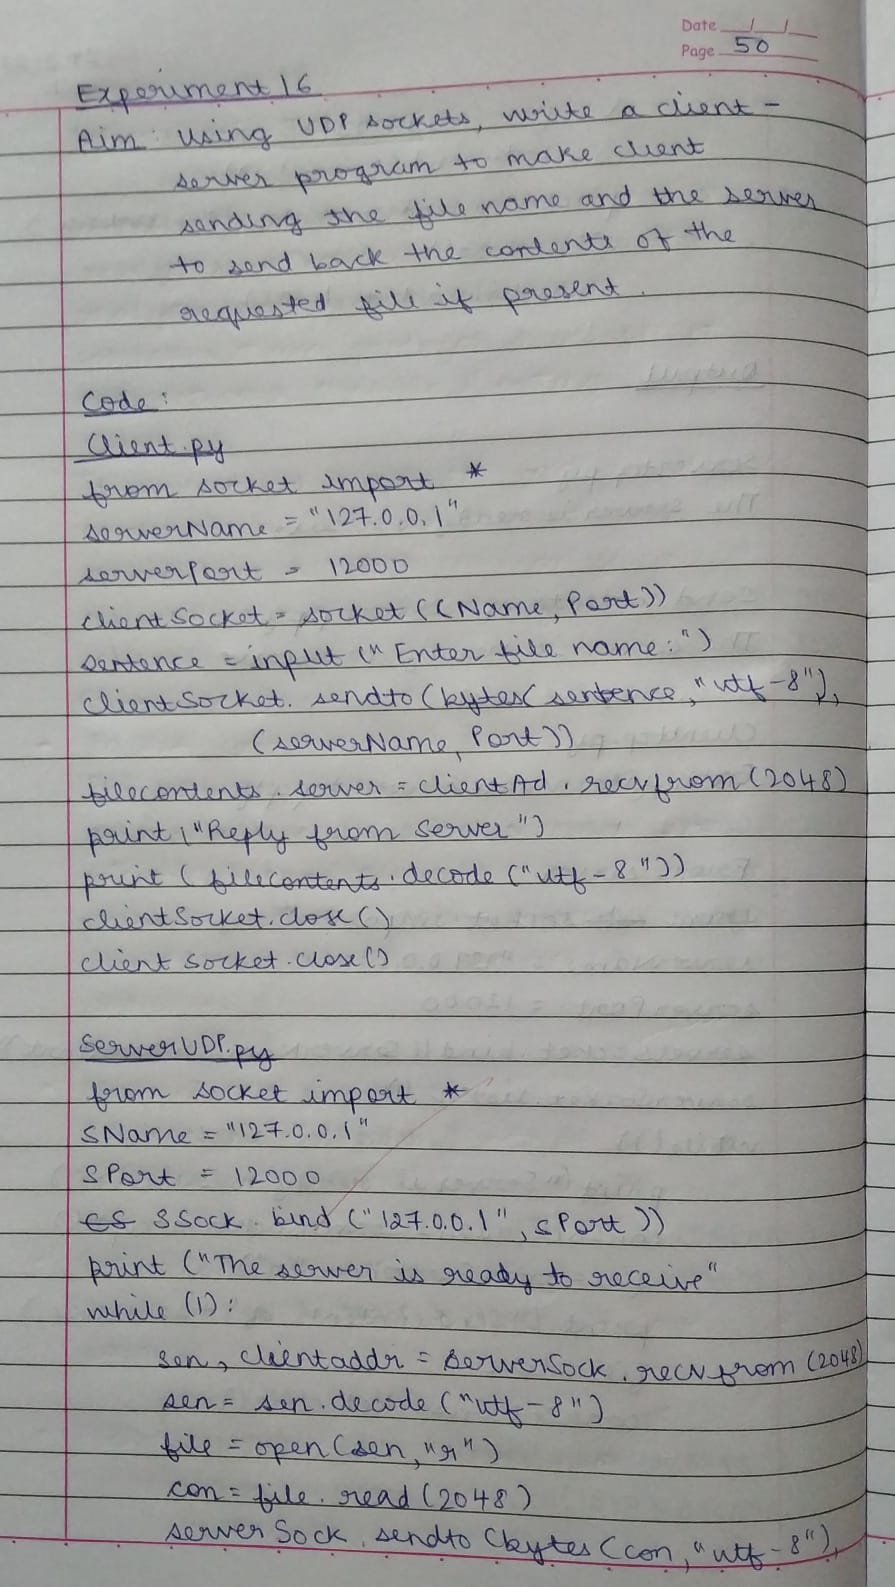 Date / /
Page 50
Experiment 16
Aim: Using UDP sockets, write a client -
server program to make client
sending the file name and the server
to send back the contents of the
requested file if present.
Code:
Client.py
from socket import *
serverName = "127.0.0.1"
serverPort = 12000
clientSocket = socket((Name, Port))
sentence = input (" Enter file name:")
clientSocket. sendto (bytes( sentence, "utf-8"),
(serverName, Port))
filecontents. server = clientAd. recvfrom (2048)
print ("Reply from Server")
print ( filecontents. decode ("utf-8"))
clientSocket.close()
client socket.close()
ServerUDP.py
from socket import *
SName = "127.0.0.1"
SPort = 12000
SSock. bind ("127.0.0.1", sPort))
print ("The server is ready to receive"
while (1):
sen, clientaddr = serverSock. recvfrom (2048)
sen = sen.decode ("utf-8")
file = open(sen, "r")
con = file. read (2048)
serverSock. sendto (bytes (con, "utf-8"),